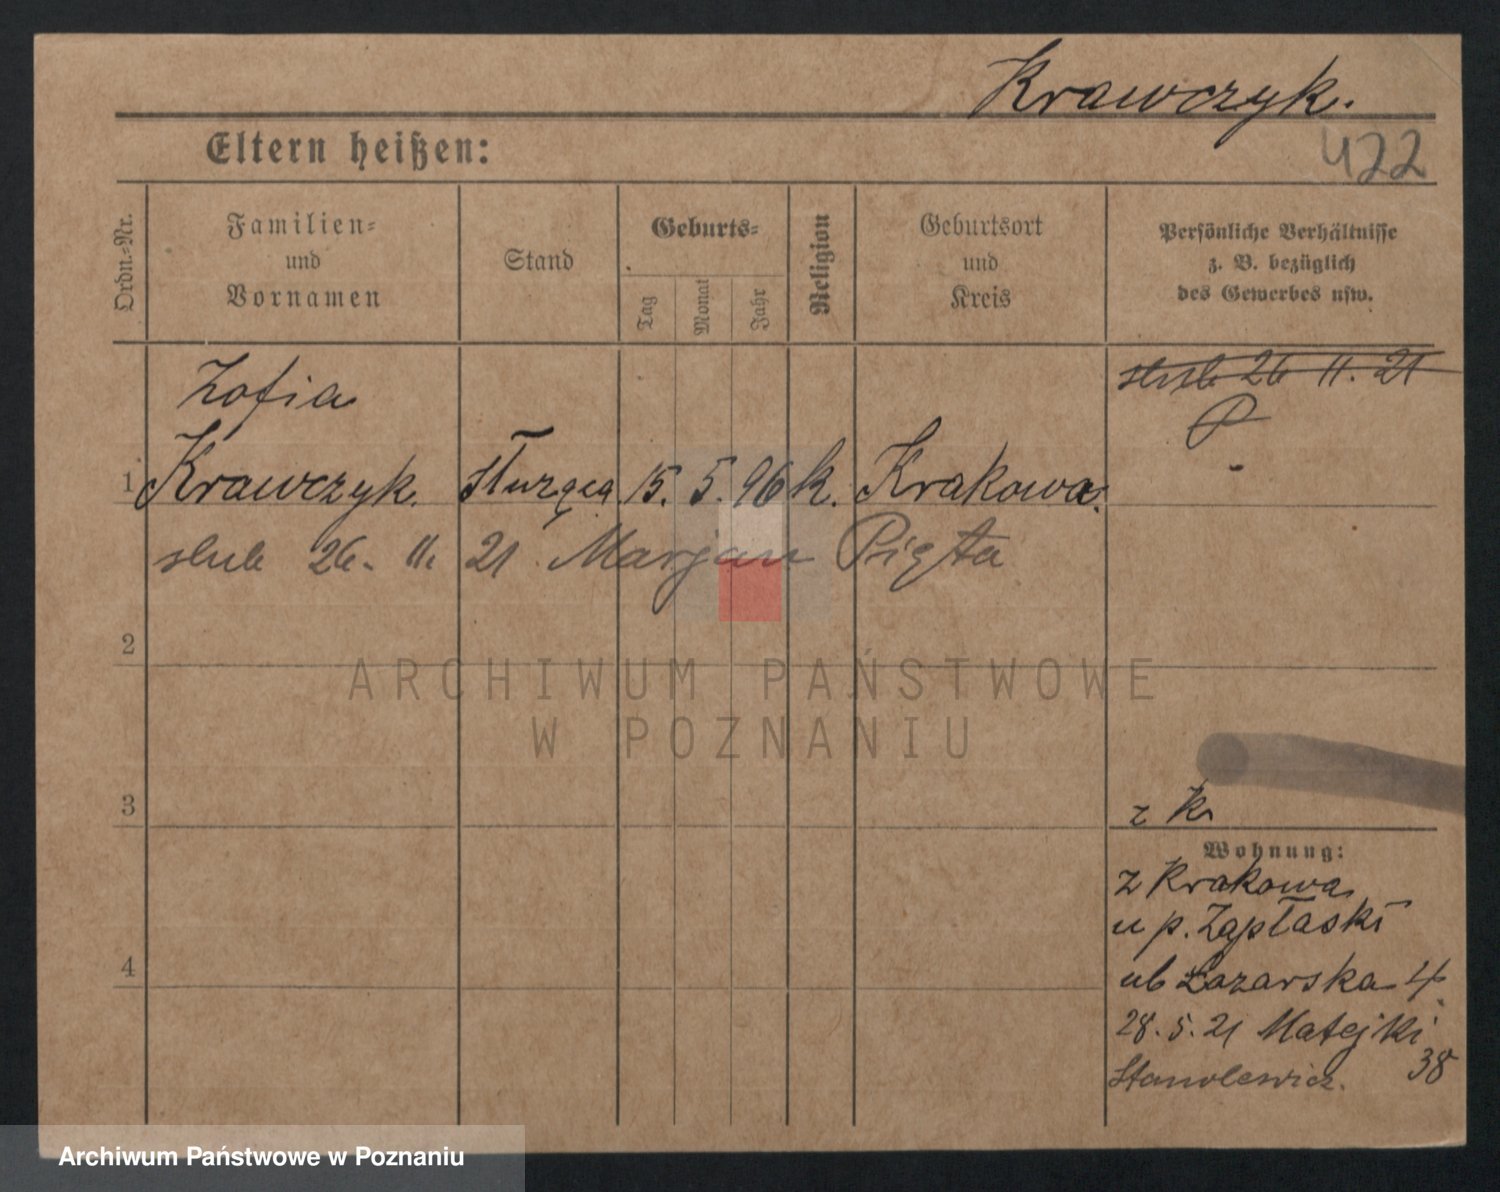 Krawczyk.
422
Eltern heißen:
Ordn.-Nr.
Familien-
und
Vornamen
Stand
Geburts-
Tag
Monat
Jahr
Religion
Geburtsort
und
Kreis
Persönliche Verhältnisse
z. B. bezüglich
des Gewerbes usw.
Zofia
ślub 26 11. 21
P
1 Krawczyk. służąca 15. 5. 96 k. Krakowa.
slub 26. 11. 21 Marjan Pięta
2
ARCHIWUM PAŃSTWOWE
W POZNANIU
3
z Kr
Wohnung:
z Krakowa
u p. Zapłaski
ul Łazarska 4
4
28. 5. 21 Matejki
38
Archiwum Państwowe w Poznaniu